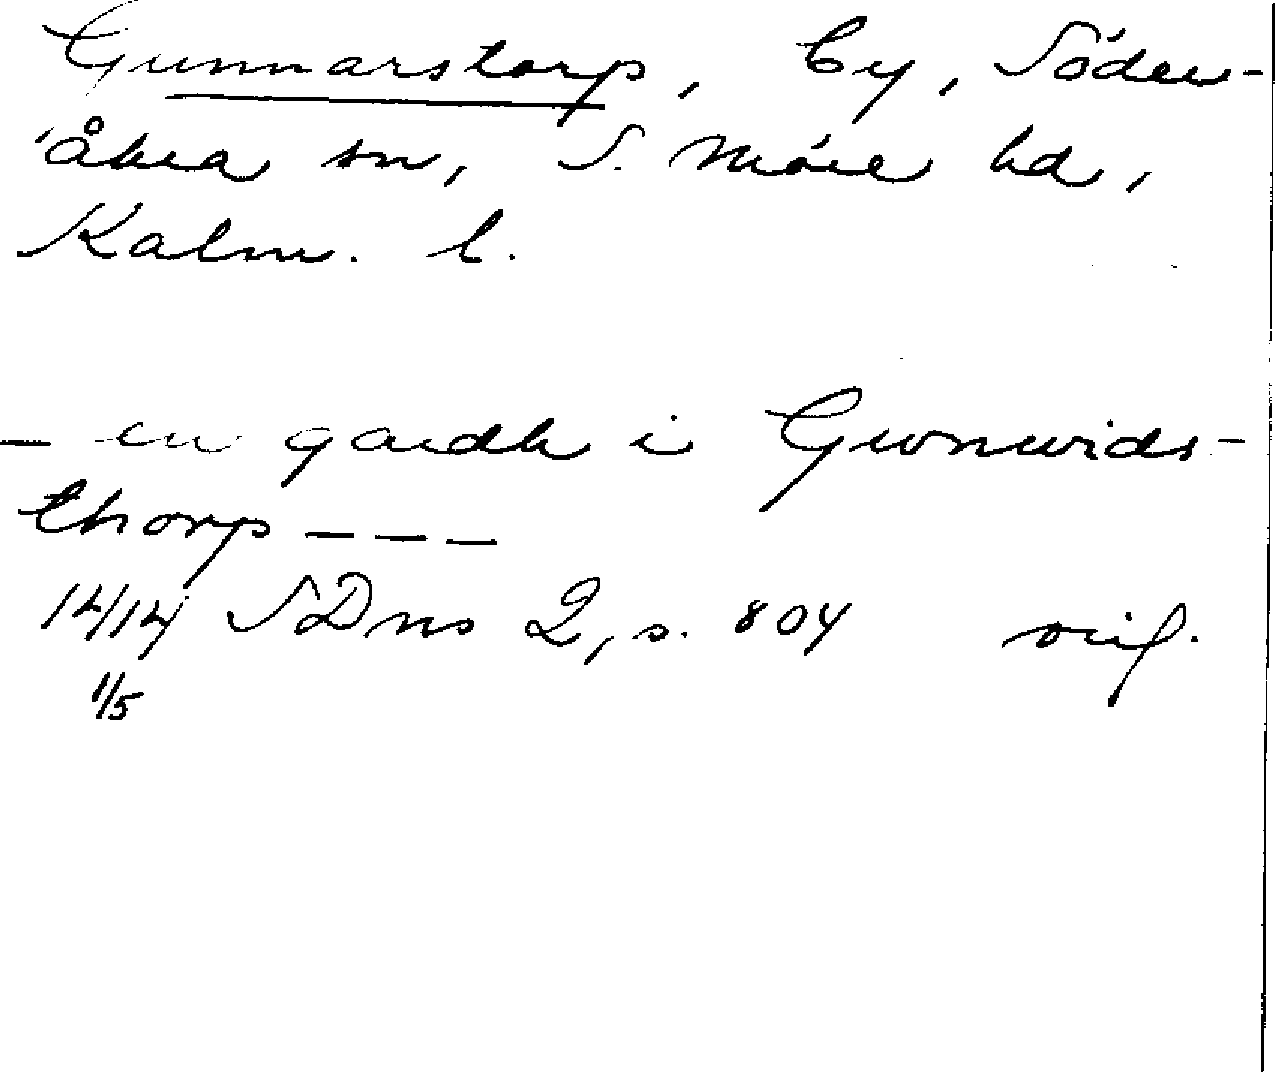 Gunnarstorp, by, Söder-
åkra sn, S. Möre hd,
Kalm. l.
- en gardh i Gwnwids-
thorp - - -
14/14 SDns 2, s. 804 orif.
1/5